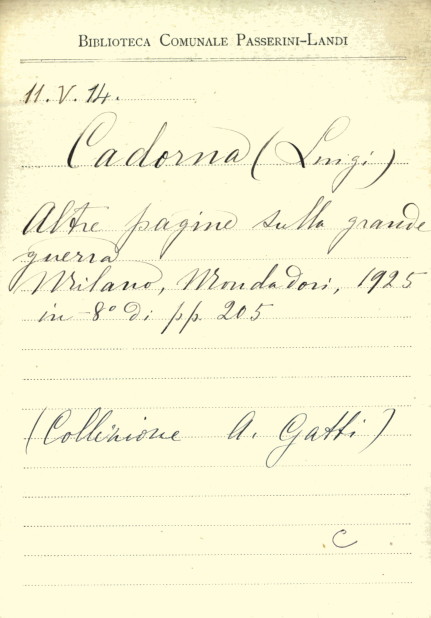 BIBLIOTECA COMUNALE PASSERINI-LANDI
11. V. 14.
Cadorna (Luigi)
Altre pagine sulla grande
guerra
Milano, Mondadori, 1925
in-8° di pp. 205
(Collezione A. Gatti)
C